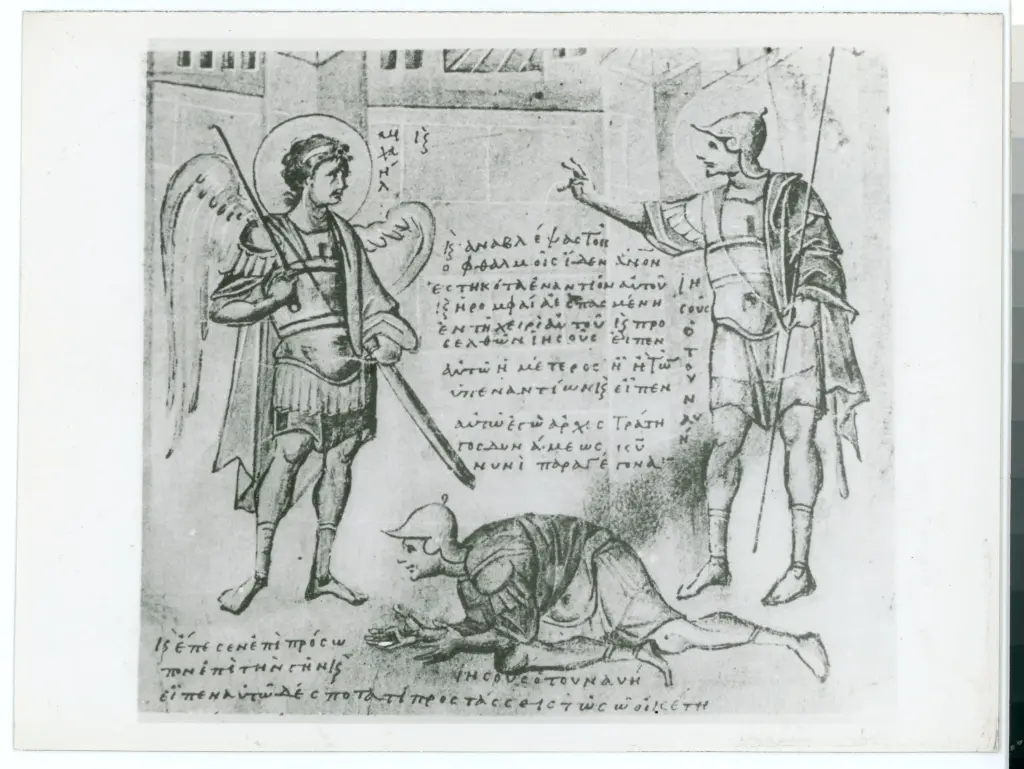 ΜΙ
ΧΑ
ΗΛ
Ιϛ
Ιϛ ἀναβλέψας τοῖς
ὀφθαλμοῖς ἴδεν ἄνον
ἑστηκότα ἐναντίον αὐτοῦ
Ιϛ ἡ ρομφαία ἐσπασμένη
ἐν τῇ χειρὶ αὐτοῦ Ιϛ προ
σελθὼν Ἰησοῦς εἶπεν
αὐτῷ ἡμέτερος ἢ ἢ τῶ
ὑπεναντίων Ιϛ εἶπεν
αὐτῷ ἐγὼ ἀρχιστράτη
γος δυνάμεως κυ
νυνὶ παραγέγονα
ἰησοῦς ὁ τοῦ ναυή
Ιϛ ἔπεσεν ἐπὶ πρόσω
πον ἐπὶ τὴν γὴν Ιϛ
ἰησοῦς ὁ τοῦ ναυή
εἶπεν αὐτῷ δέσποτα τί προστάσσεις τῷ σῷ οἰκέτῃ